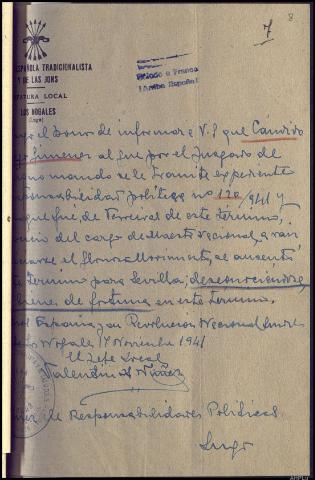 8
7
ESPAÑOLA TRADICIONALISTA
Y DE LAS JONS
JEFATURA LOCAL
LOS NOGALES
(Lugo)
Saludo a Franco
¡Arriba España!
el honor de informar a V.S que Cándido
Jimenez al que por el Juzgado de
mando se le tramita expediente
responsabilidad politica no 120/941 y
que fue, de Ferreiras de este término,
del cargo de Maestro Nacional, a raiz
Glorioso Movimiento, al
termino para Sevilla, desconociendose
bienes de fortuna en este término.
España y su Revolucion Nacional Sindi
Los Nogales 17 Noviembre 1941
El Jefe Local
Valentin Nuñez
de Responsabilidades Politicas
Lugo